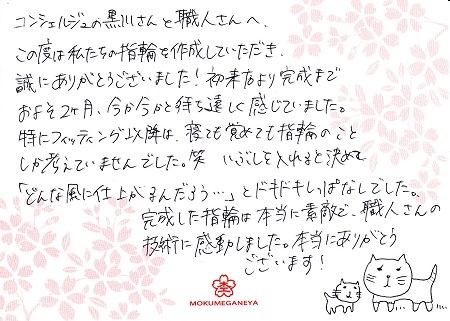 コンシェルジュの黒川さんと職人さんへ、
この度は私たちの指輪を作成していただき、
誠にありがとうございました！初来店より完成まで
およそ2ヶ月、今か今かと待ち遠しく感じていました。
特にフィッティング以降は、寝ても覚めても指輪のこと
しか考えていませんでした。笑 いぶしを入れると決めて
「どんな風に仕上がるんだろう…」とドキドキしぱなしでした。
完成した指輪は本当に素敵で、職人さんの
技術に感動しました。本当にありがとう
ございます！
MOKUMEGANEYA